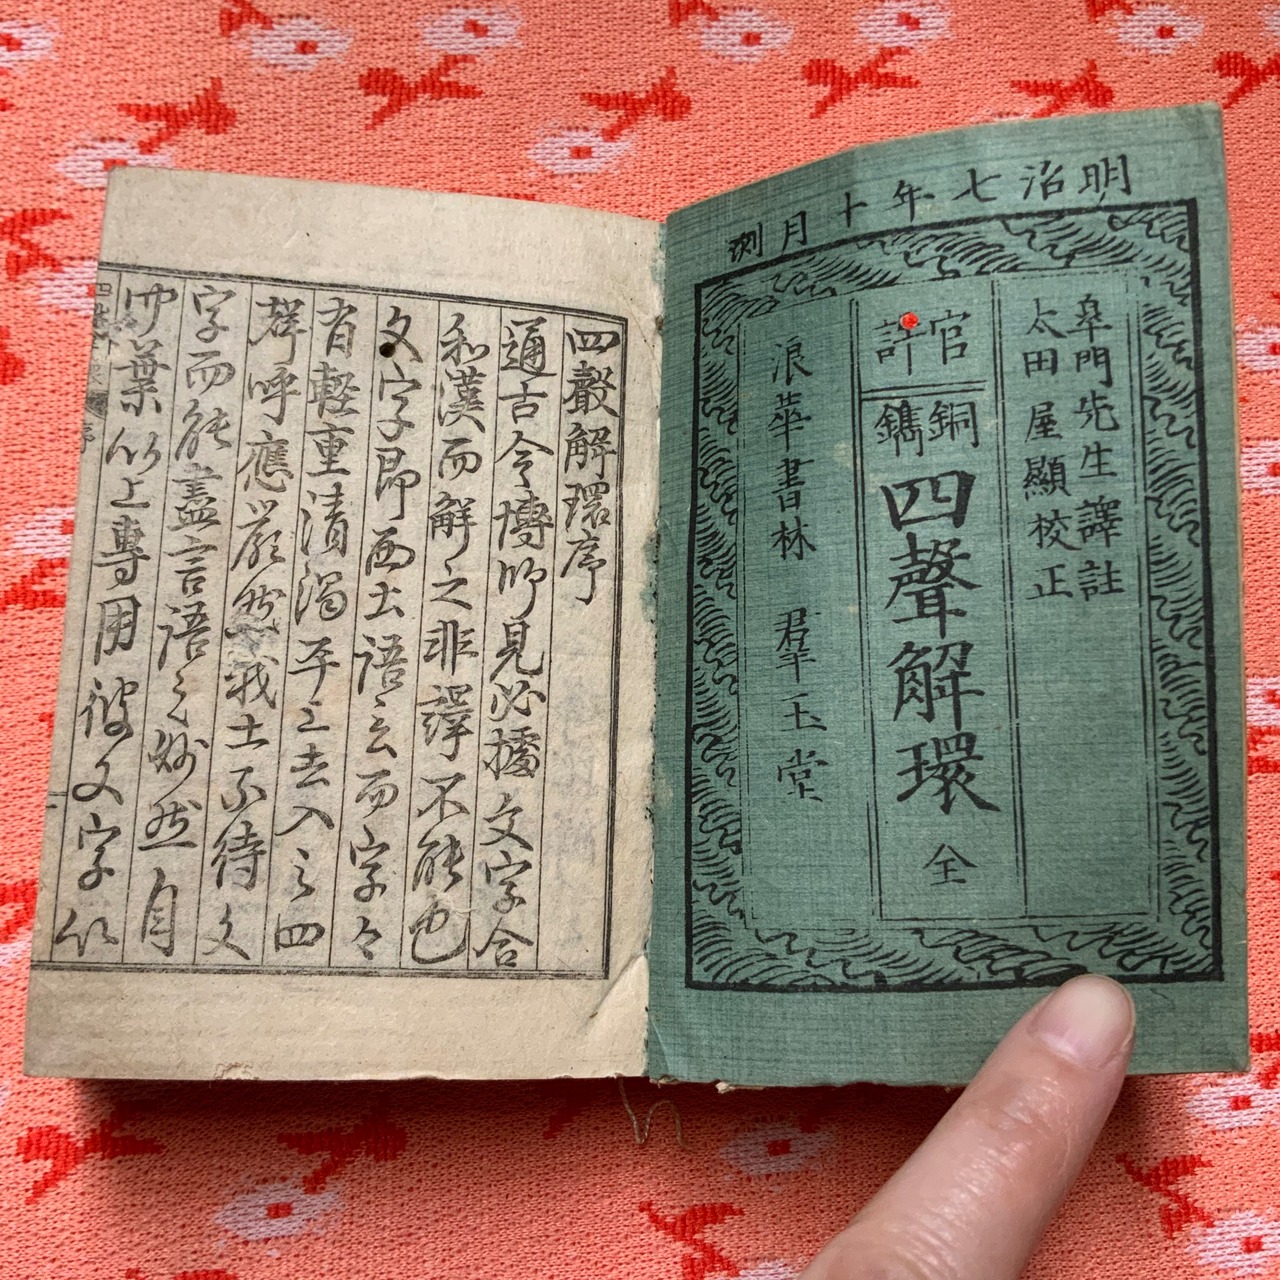 明治七年十月刻
皐門先生譯註
太田屋顯校正
官許
銅鐫
四聲解環 全
浪華書林 羣玉堂
四聲解環序
通古今博所見必據文字合
和漢而解之非譯不能也
文字即西土語言而字々
有輕重清濁平上去入之四
聲呼應嚴然我土不待文
字而能盡言語之妙然自
中葉以上專用彼文字以